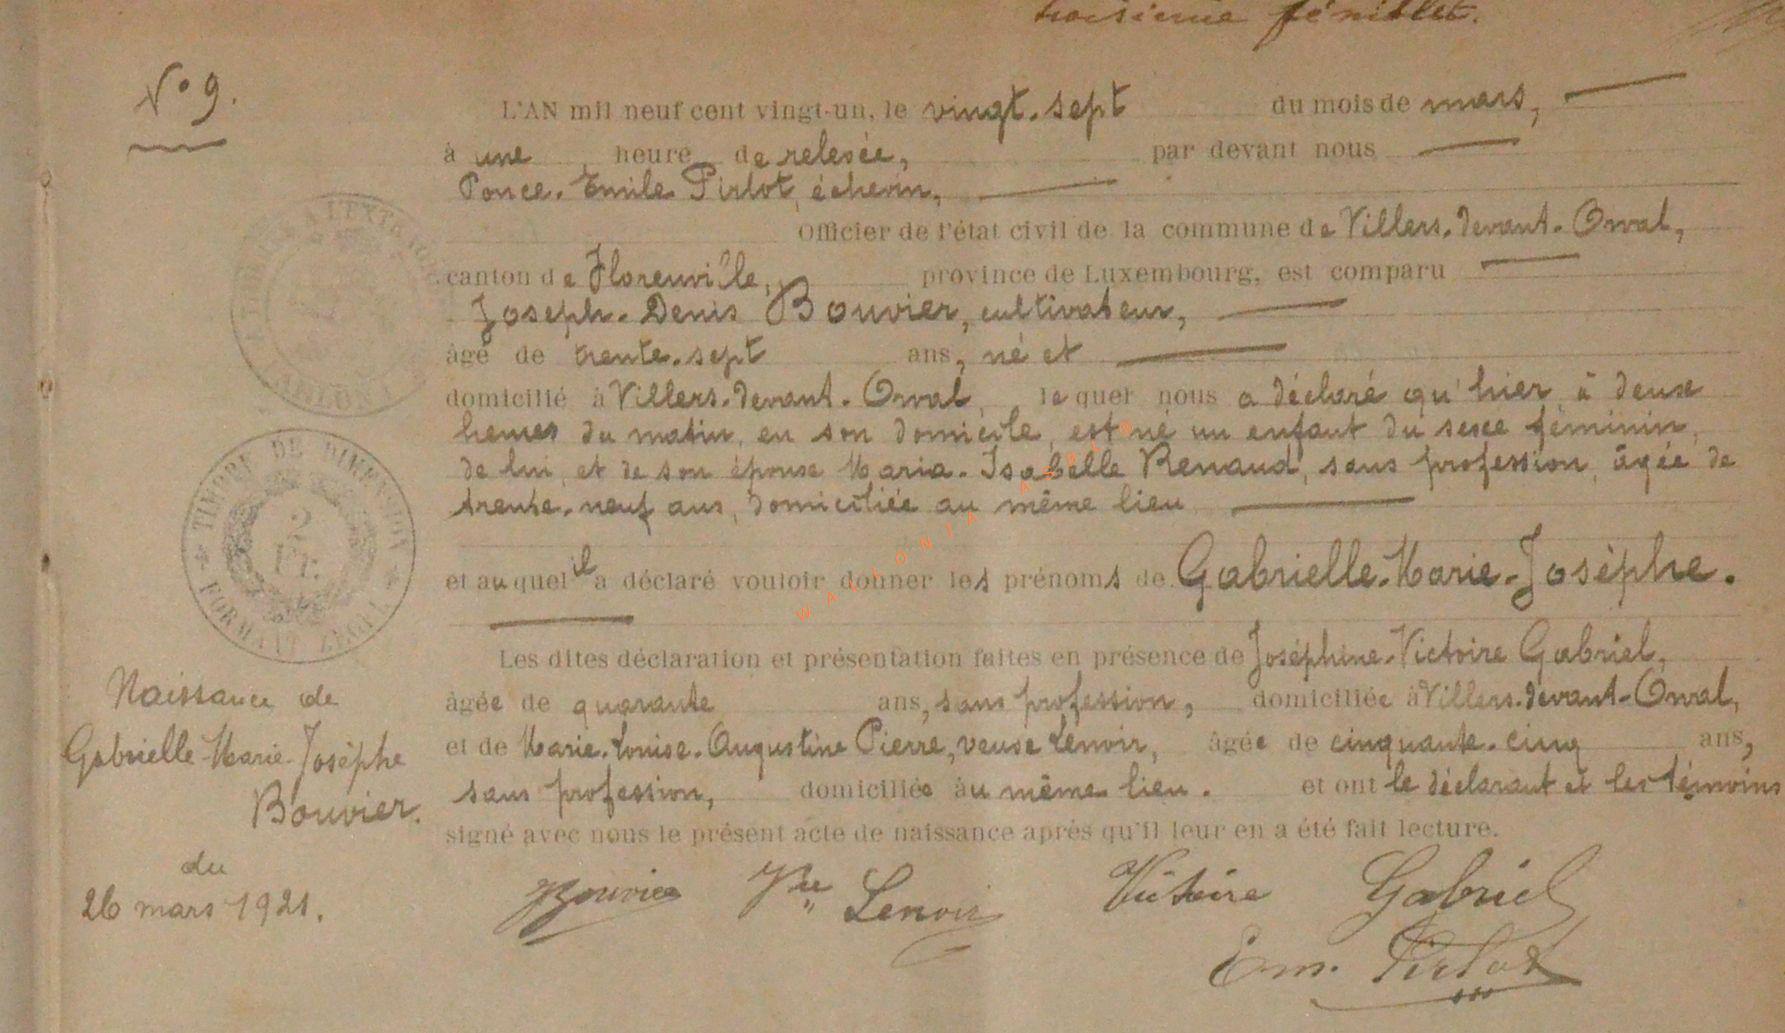 troisième feuillet.
N° 9.
L'AN mil neuf cent vingt-un, le vingt-sept du mois de mars,
à une heure de relevée, par devant nous
Ponce-Emile Pirlot, échevin,
Officier de l'état civil de la commune de Villers-devant-Orval,
canton de Florenville, province de Luxembourg, est comparu
Joseph-Denis Bouvier, cultivateur,
âgé de trente-sept ans, né et
domicilié à Villers-devant-Orval, lequel nous a déclaré qu'hier à deux
heures du matin, en son domicile, est né un enfant du sexe féminin,
de lui, et de son épouse Maria-Isabelle Renaud, sans profession, âgée de
trente-neuf ans, domiciliée au même lieu
et auquel il a déclaré vouloir donner les prénoms de Gabrielle-Marie-Josèphe.
Les dites déclaration et présentation faites en présence de Joséphine-Victoire Gabriel,
âgée de quarante ans, sans profession, domiciliée à Villers-devant-Orval,
et de Marie-Louise-Augustine Pierre, veuve Lenoir, âgée de cinquante-cinq ans,
sans profession, domiciliée au même lieu. et ont le déclarant et les témoins
signé avec nous le présent acte de naissance après qu'il leur en a été fait lecture.
Bouvier Vve Lenoir Victoire Gabriel
Em. Pirlot
TIMBRE DE DIMENSION
2 Fr.
FORMAT LEGAL
Naissance de
Gabrielle-Marie-Josèphe
Bouvier.
du
26 mars 1921.